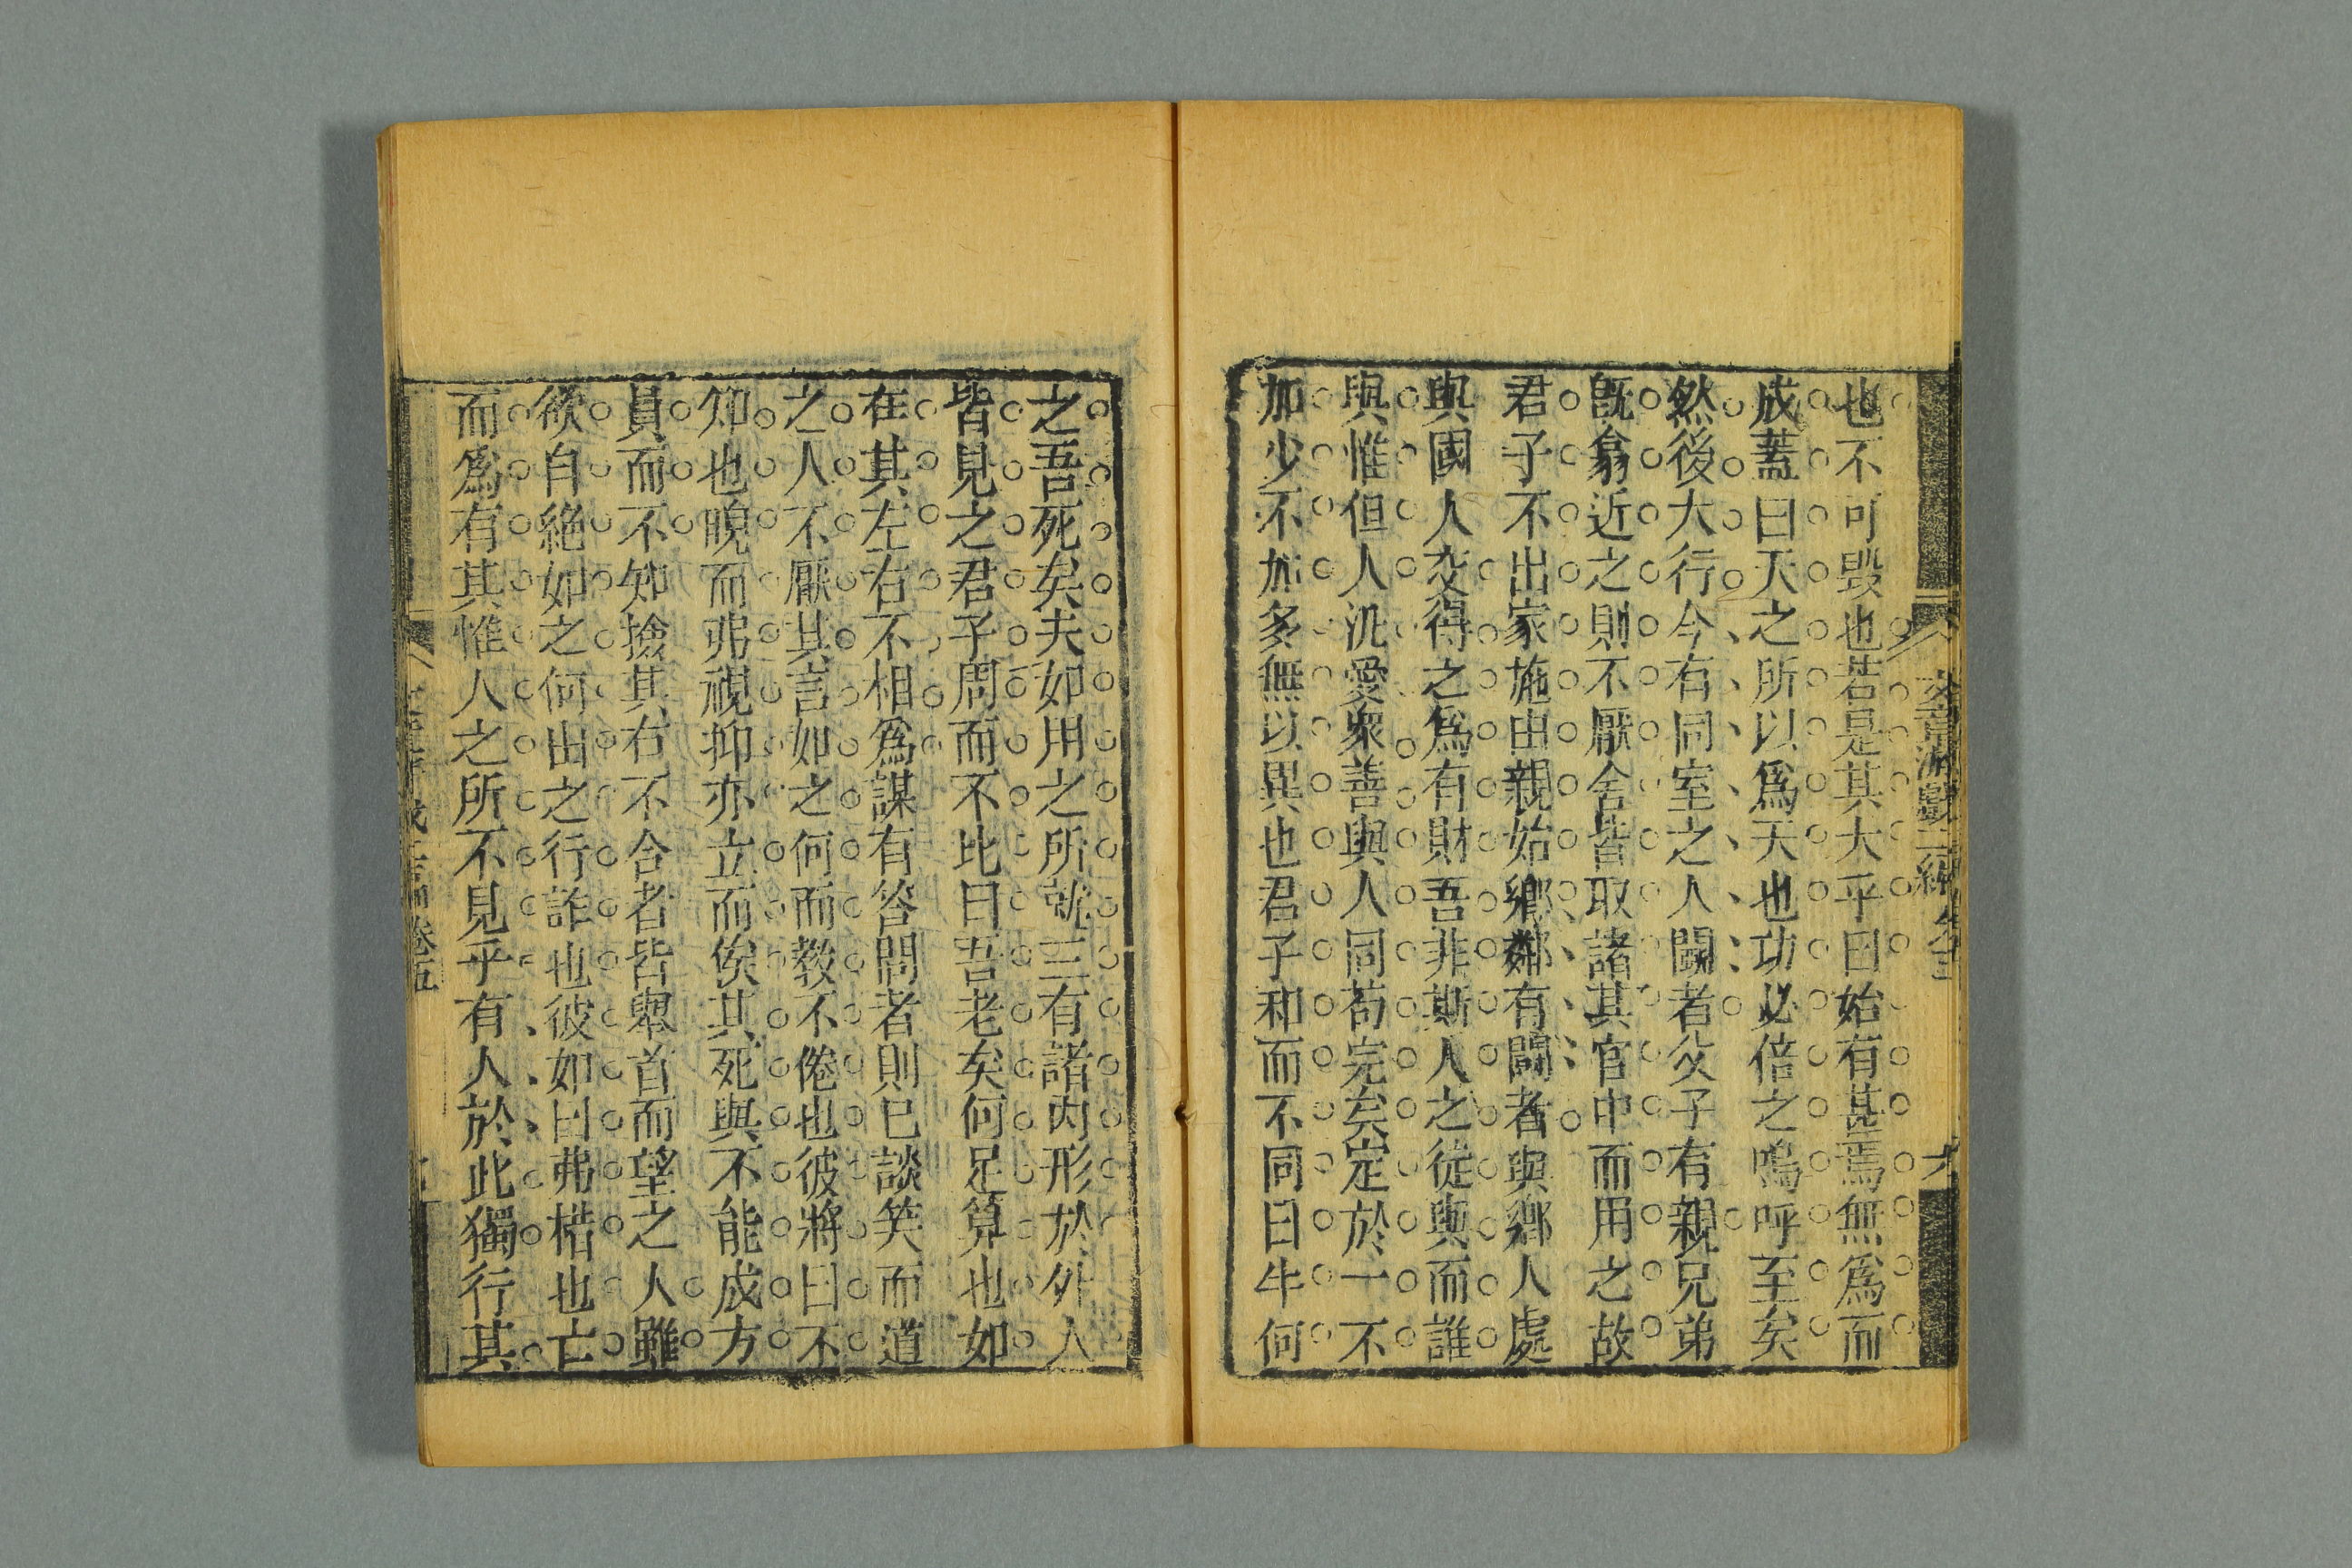 也不可毀也若是其大乎曰始有甚焉無爲而
成蓋曰天之所以爲天也功必倍之嗚呼至矣
然後大行今有同室之人鬭者父子有親兄弟
旣翕近之則不厭舍皆取諸其宫中而用之故
君子不出家施由親始鄉鄰有鬭者與鄉人處
與國人交得之爲有財吾非斯人之徒與而誰
與惟但人汎愛衆善與人同苟完矣定於一不
加少不加多無以異也君子和而不同曰牛何
之吾死矣夫如用之所就三有諸内形於外人
皆見之君子周而不比曰吾老矣何足算也如
在其左右不相爲謀有答問者則已談笑而道
之人不厭其言如之何而教不倦也彼將曰不
知也睨而弗視抑亦立而俟其死與不能成方
員而不知撿其右不合者皆舉首而望之人雖
欲自絶如之何出之行詐也彼如曰弗楛也亡
而爲有其惟人之所不見乎有人於此獨行其
文章游戲二編卷五
卷五